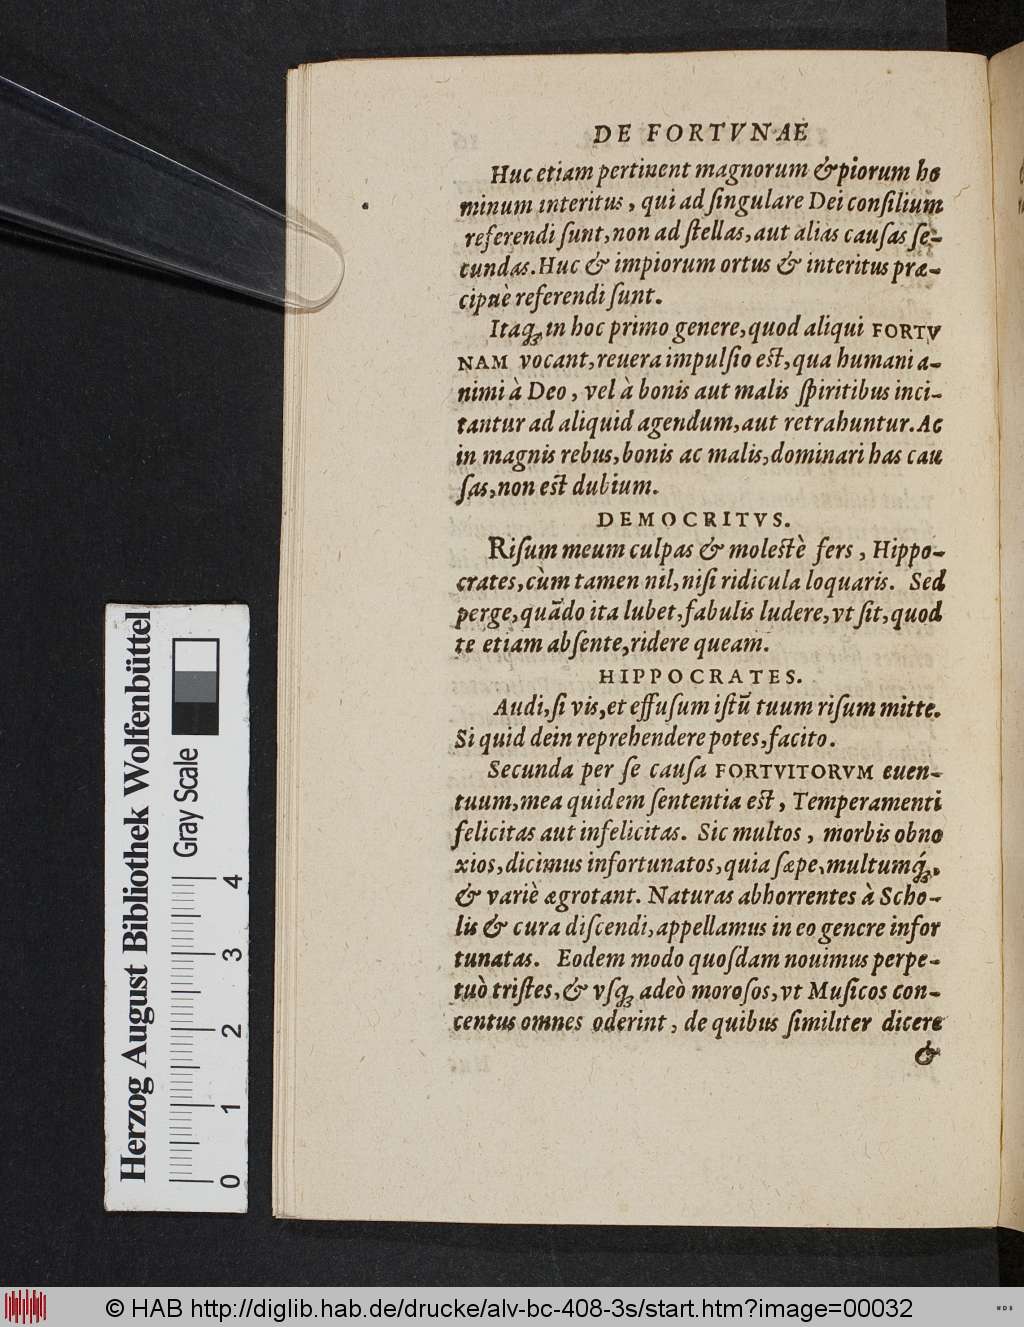 DE FORTVNAE
Huc etiam pertinent magnorum & piorum ho
minum interitus, qui ad ſingulare Dei conſilium
referendi ſunt, non ad ſtellas, aut alias cauſas ſe-
cundas. Huc & impiorum ortus & interitus præ-
cipuè referendi ſunt.
Itaq́ꝫ in hoc primo genere, quod aliqui FORTV
NAM vocant, reuera impulſio eſt, qua humani a-
nimi à Deo, vel à bonis aut malis ſpiritibus inci-
tantur ad aliquid agendum, aut retrahuntur. Ac
in magnis rebus, bonis ac malis, dominari has cau
ſas, non eſt dubium.
DEMOCRITVS.
Riſum meum culpas & moleſtè fers, Hippo-
crates, cùm tamen nil, niſi ridicula loquaris. Sed
perge, quãdo ita lubet, fabulis ludere, vt ſit, quod
te etiam abſente, ridere queam.
HIPPOCRATES.
Audi, ſi vis, et effuſum iſtũ tuum riſum mitte.
Si quid dein reprehendere potes, facito.
Secunda per ſe cauſa FORTVITORVM euen-
tuum, mea quidem ſententia eſt, Temperamenti
felicitas aut infelicitas. Sic multos, morbis obno
xios, dicimus infortunatos, quia ſæpe, multumq́ꝫ,
& variè ægrotant. Naturas abhorrentes à Scho-
lis & cura diſcendi, appellamus in eo genere infor
tunatas. Eodem modo quoſdam nouimus perpe-
tuò triſtes, & vſqꝫ adeò moroſos, vt Muſicos con-
centus omnes oderint, de quibus ſimiliter dicere
&
Herzog August Bibliothek Wolfenbüttel
Gray Scale
0 1 2 3 4
© HAB http://diglib.hab.de/drucke/alv-bc-408-3s/start.htm?image=00032